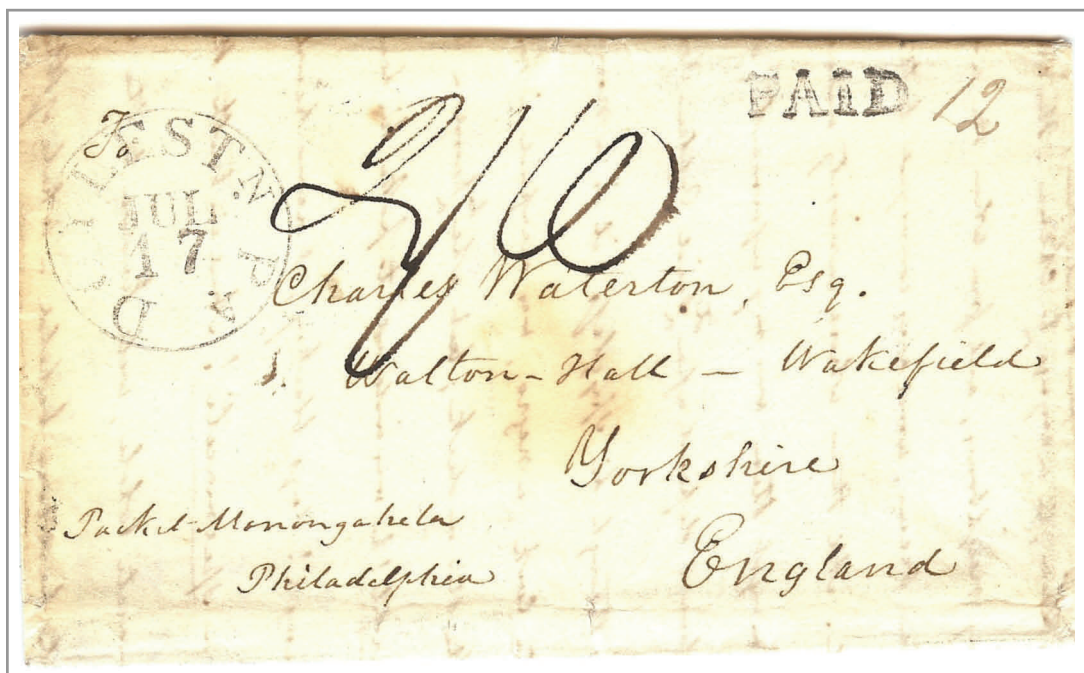 PAID 12
To
DOYLESTN. PA
JUL
17
Charles Waterton, Esq.
Walton-Hall — Wakefield
Yorkshire
England
Packet Monongahela
Philadelphia